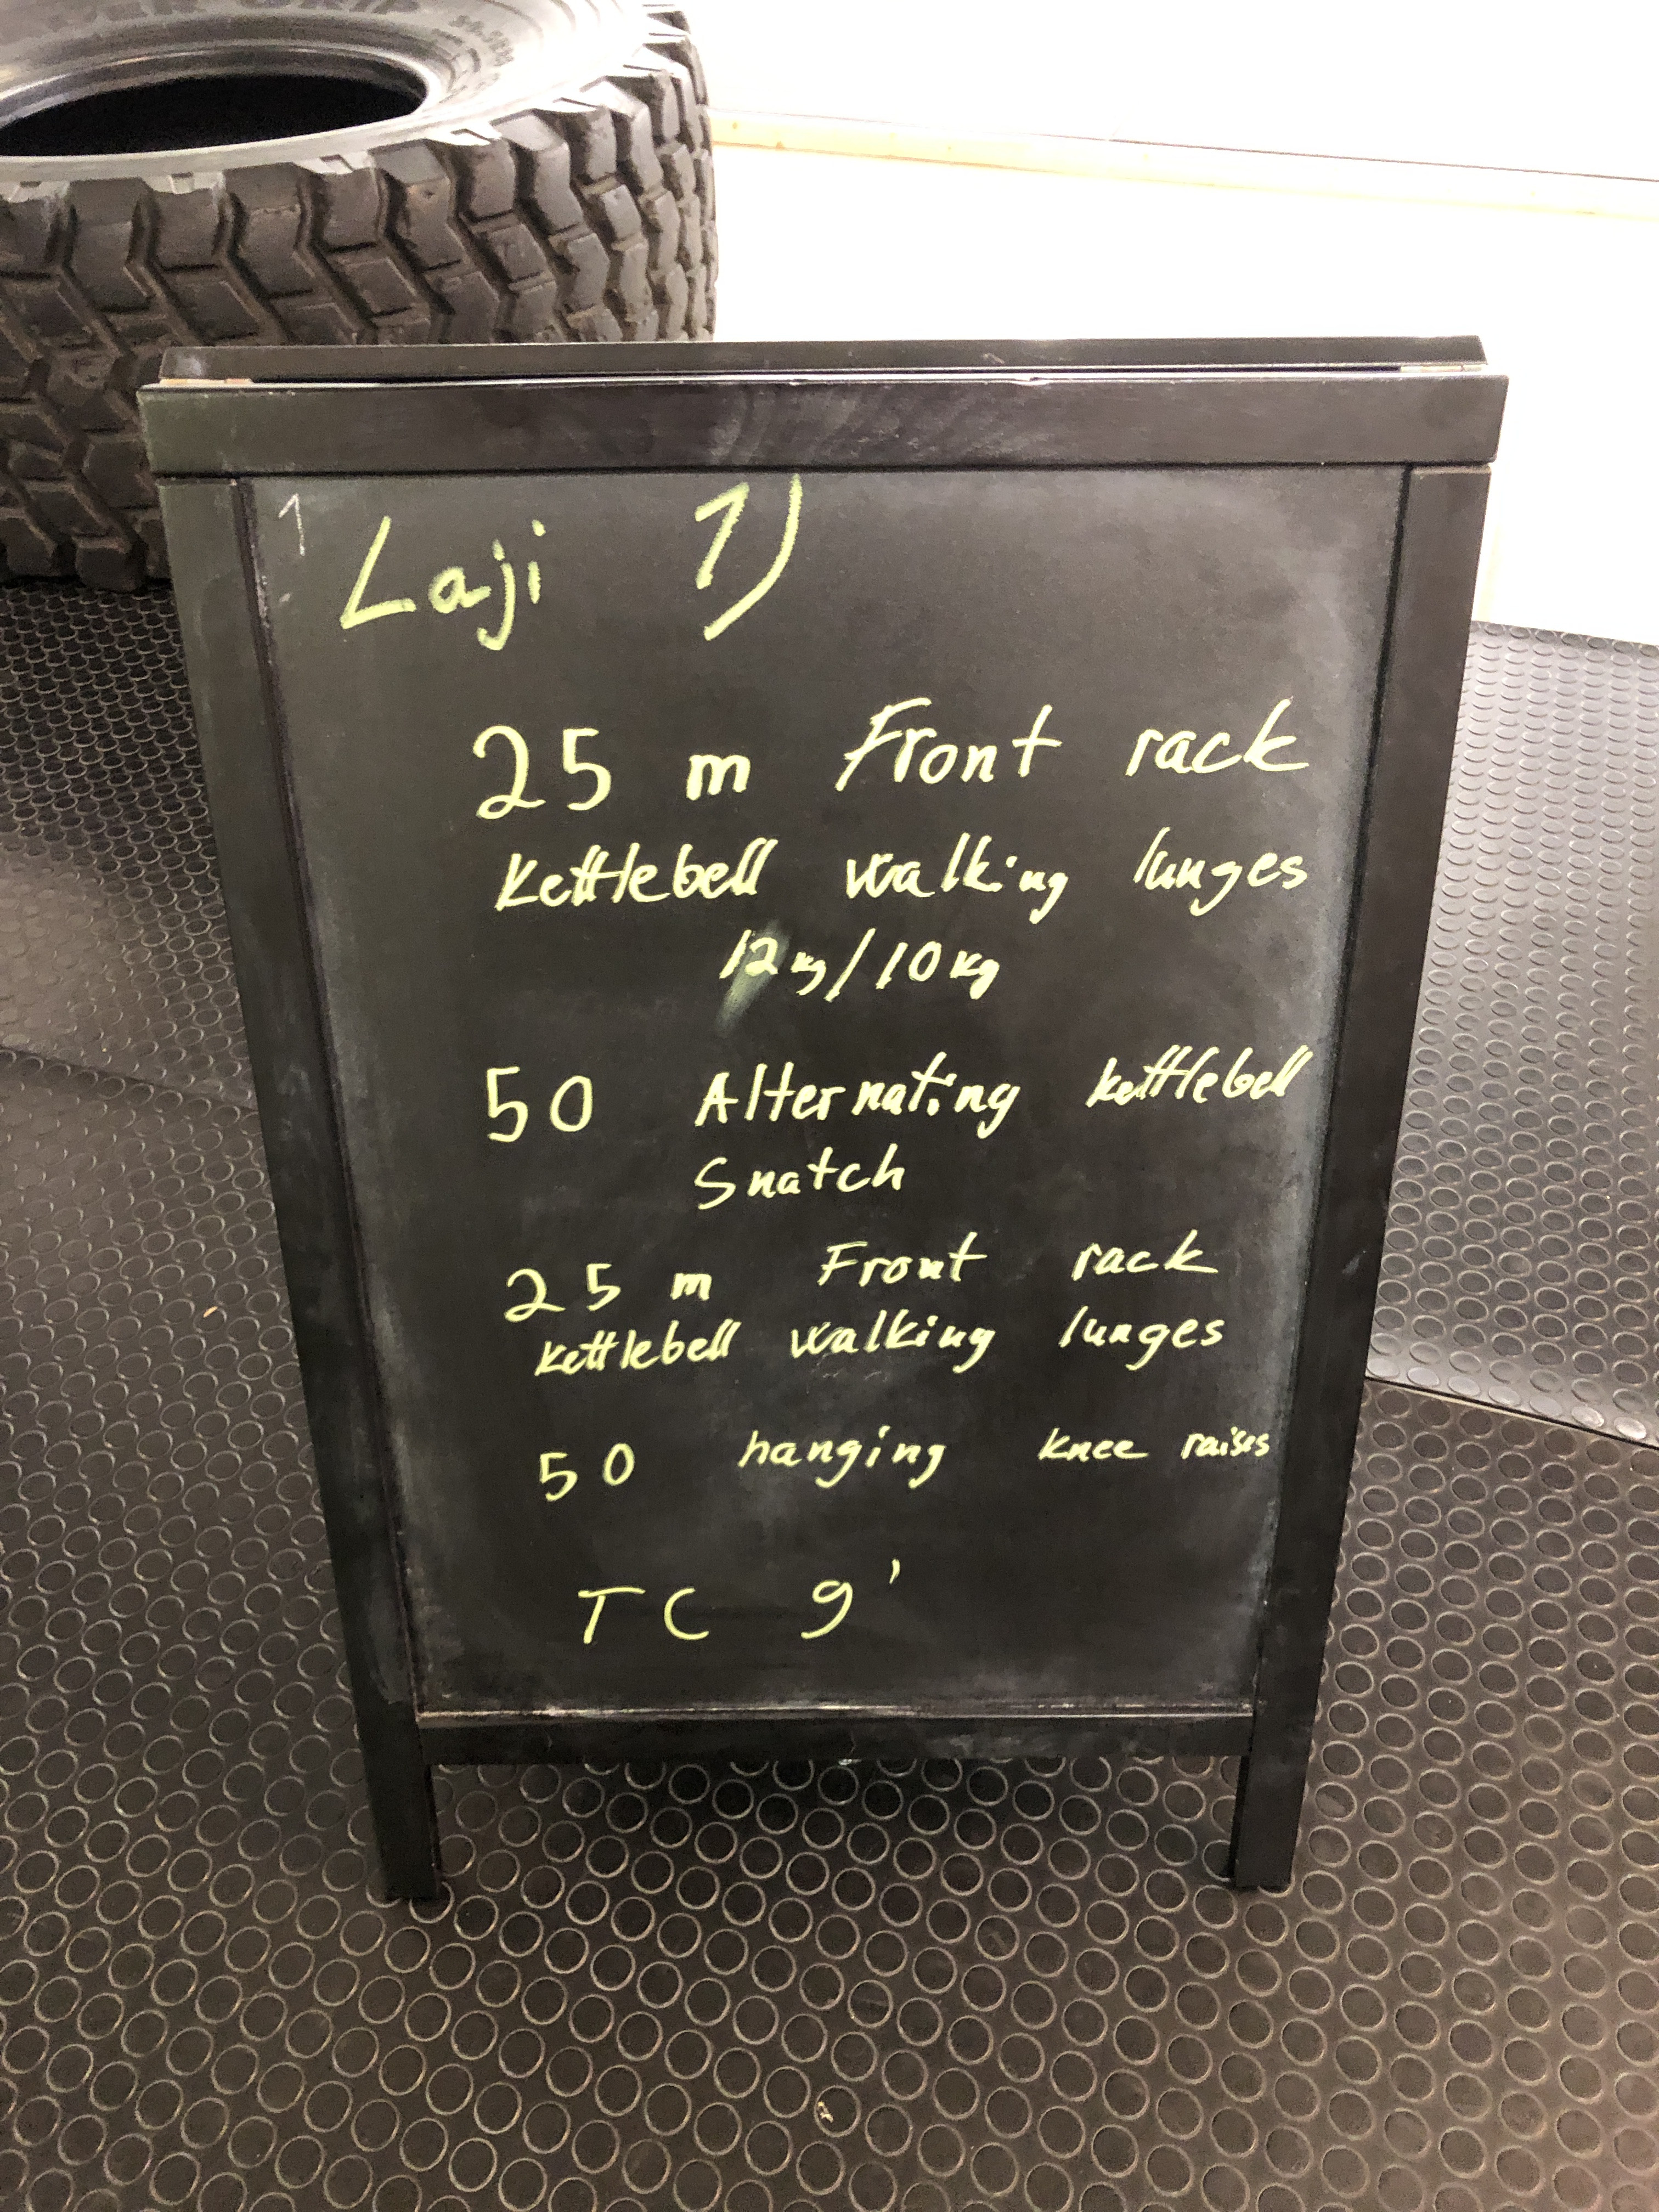 1
Laji 1)
25 m Front rack
kettlebell walking lunges
12kg/10kg
50 Alternating kettlebell
Snatch
25 m Front rack
kettlebell walking lunges
50 hanging knee raises
TC 9'